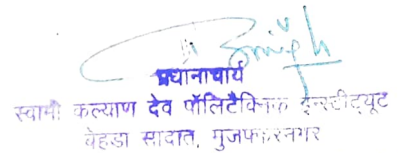 प्रधानाचार्य
स्वामी कल्याण देव पॉलिटैक्निक इन्स्टीट्यूट
बेहडा सादात, मुजफ्फरनगर